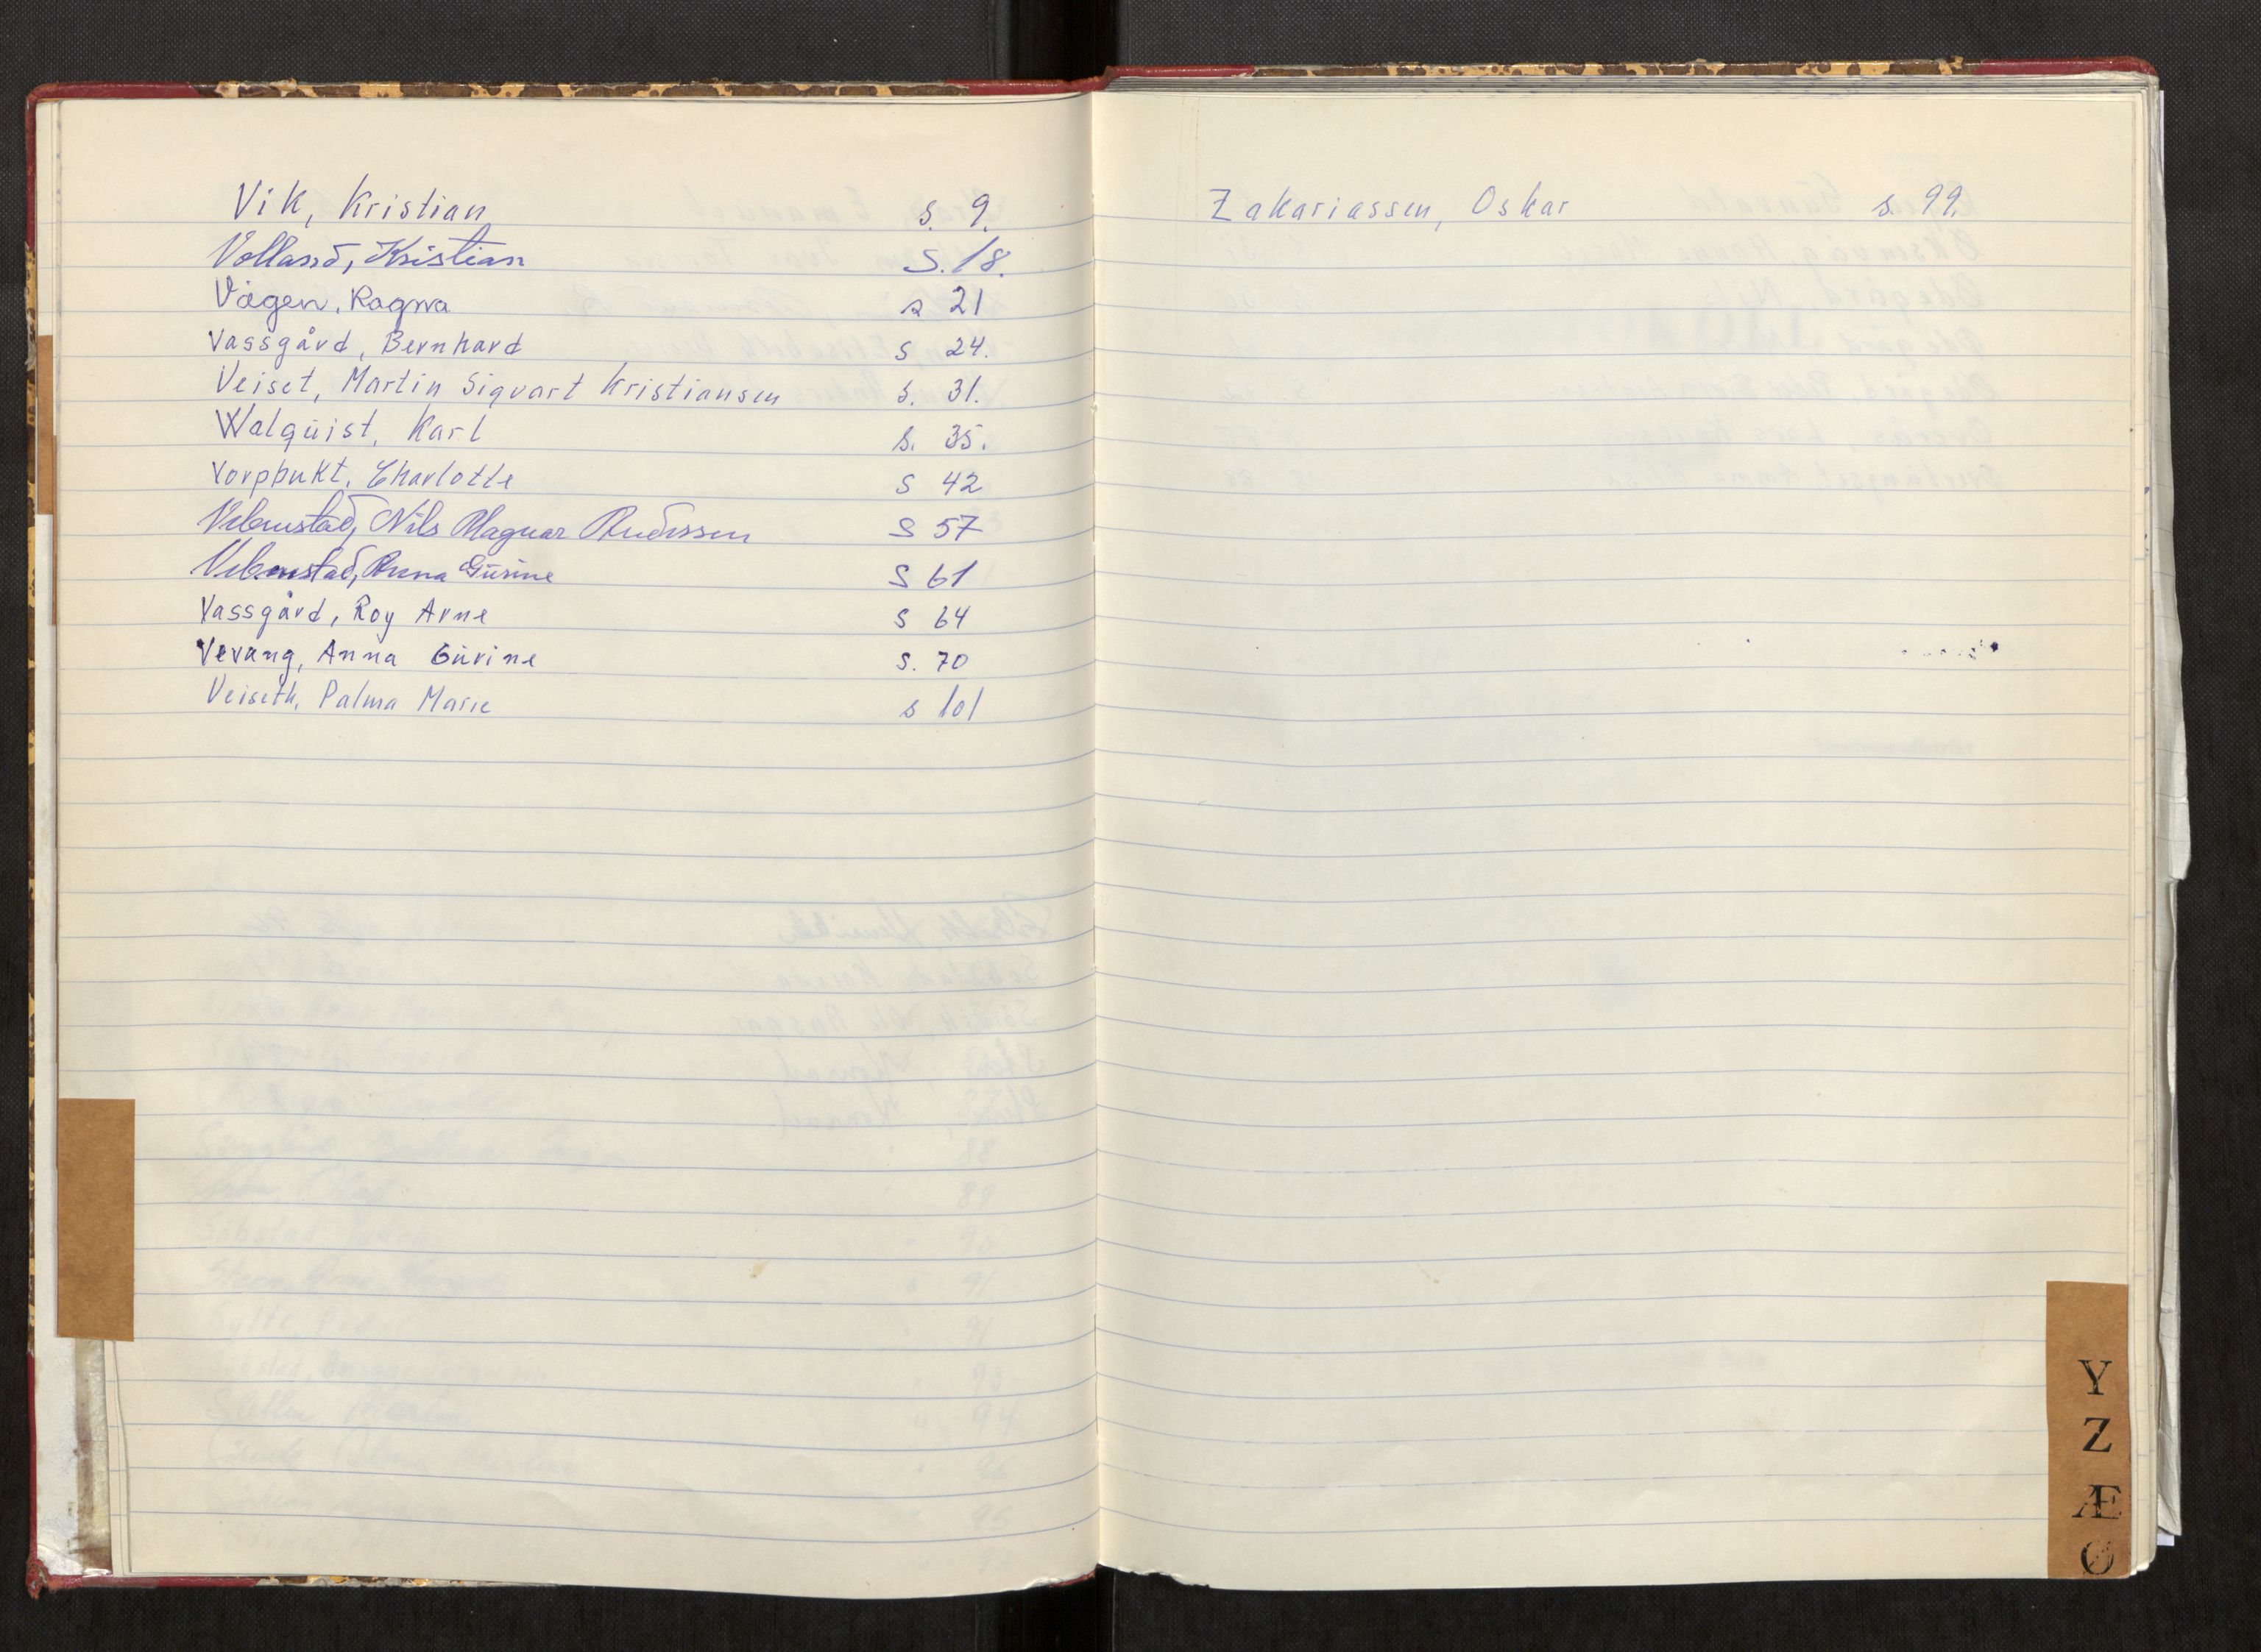 Vik, Kristian s. 9.
Volland, Kristian S. 18.
Vågen, Ragna s 21
Vassgård, Bernhard s 24.
Veiset, Martin Sigvart Kristiansen s. 31.
Walquist, Karl s. 35.
Vorpbukt, Charlotte s 42
Vebenstad, Nils Magnar Andersen S 57
Vebenstad, Anna Gurine S 61
Vassgård, Roy Arne s 64
Vevang, Anna Gurine s. 70
Veiseth, Palma Marie s 101
Zakariassen, Oskar s. 99.
Y
Z
Æ
Ø